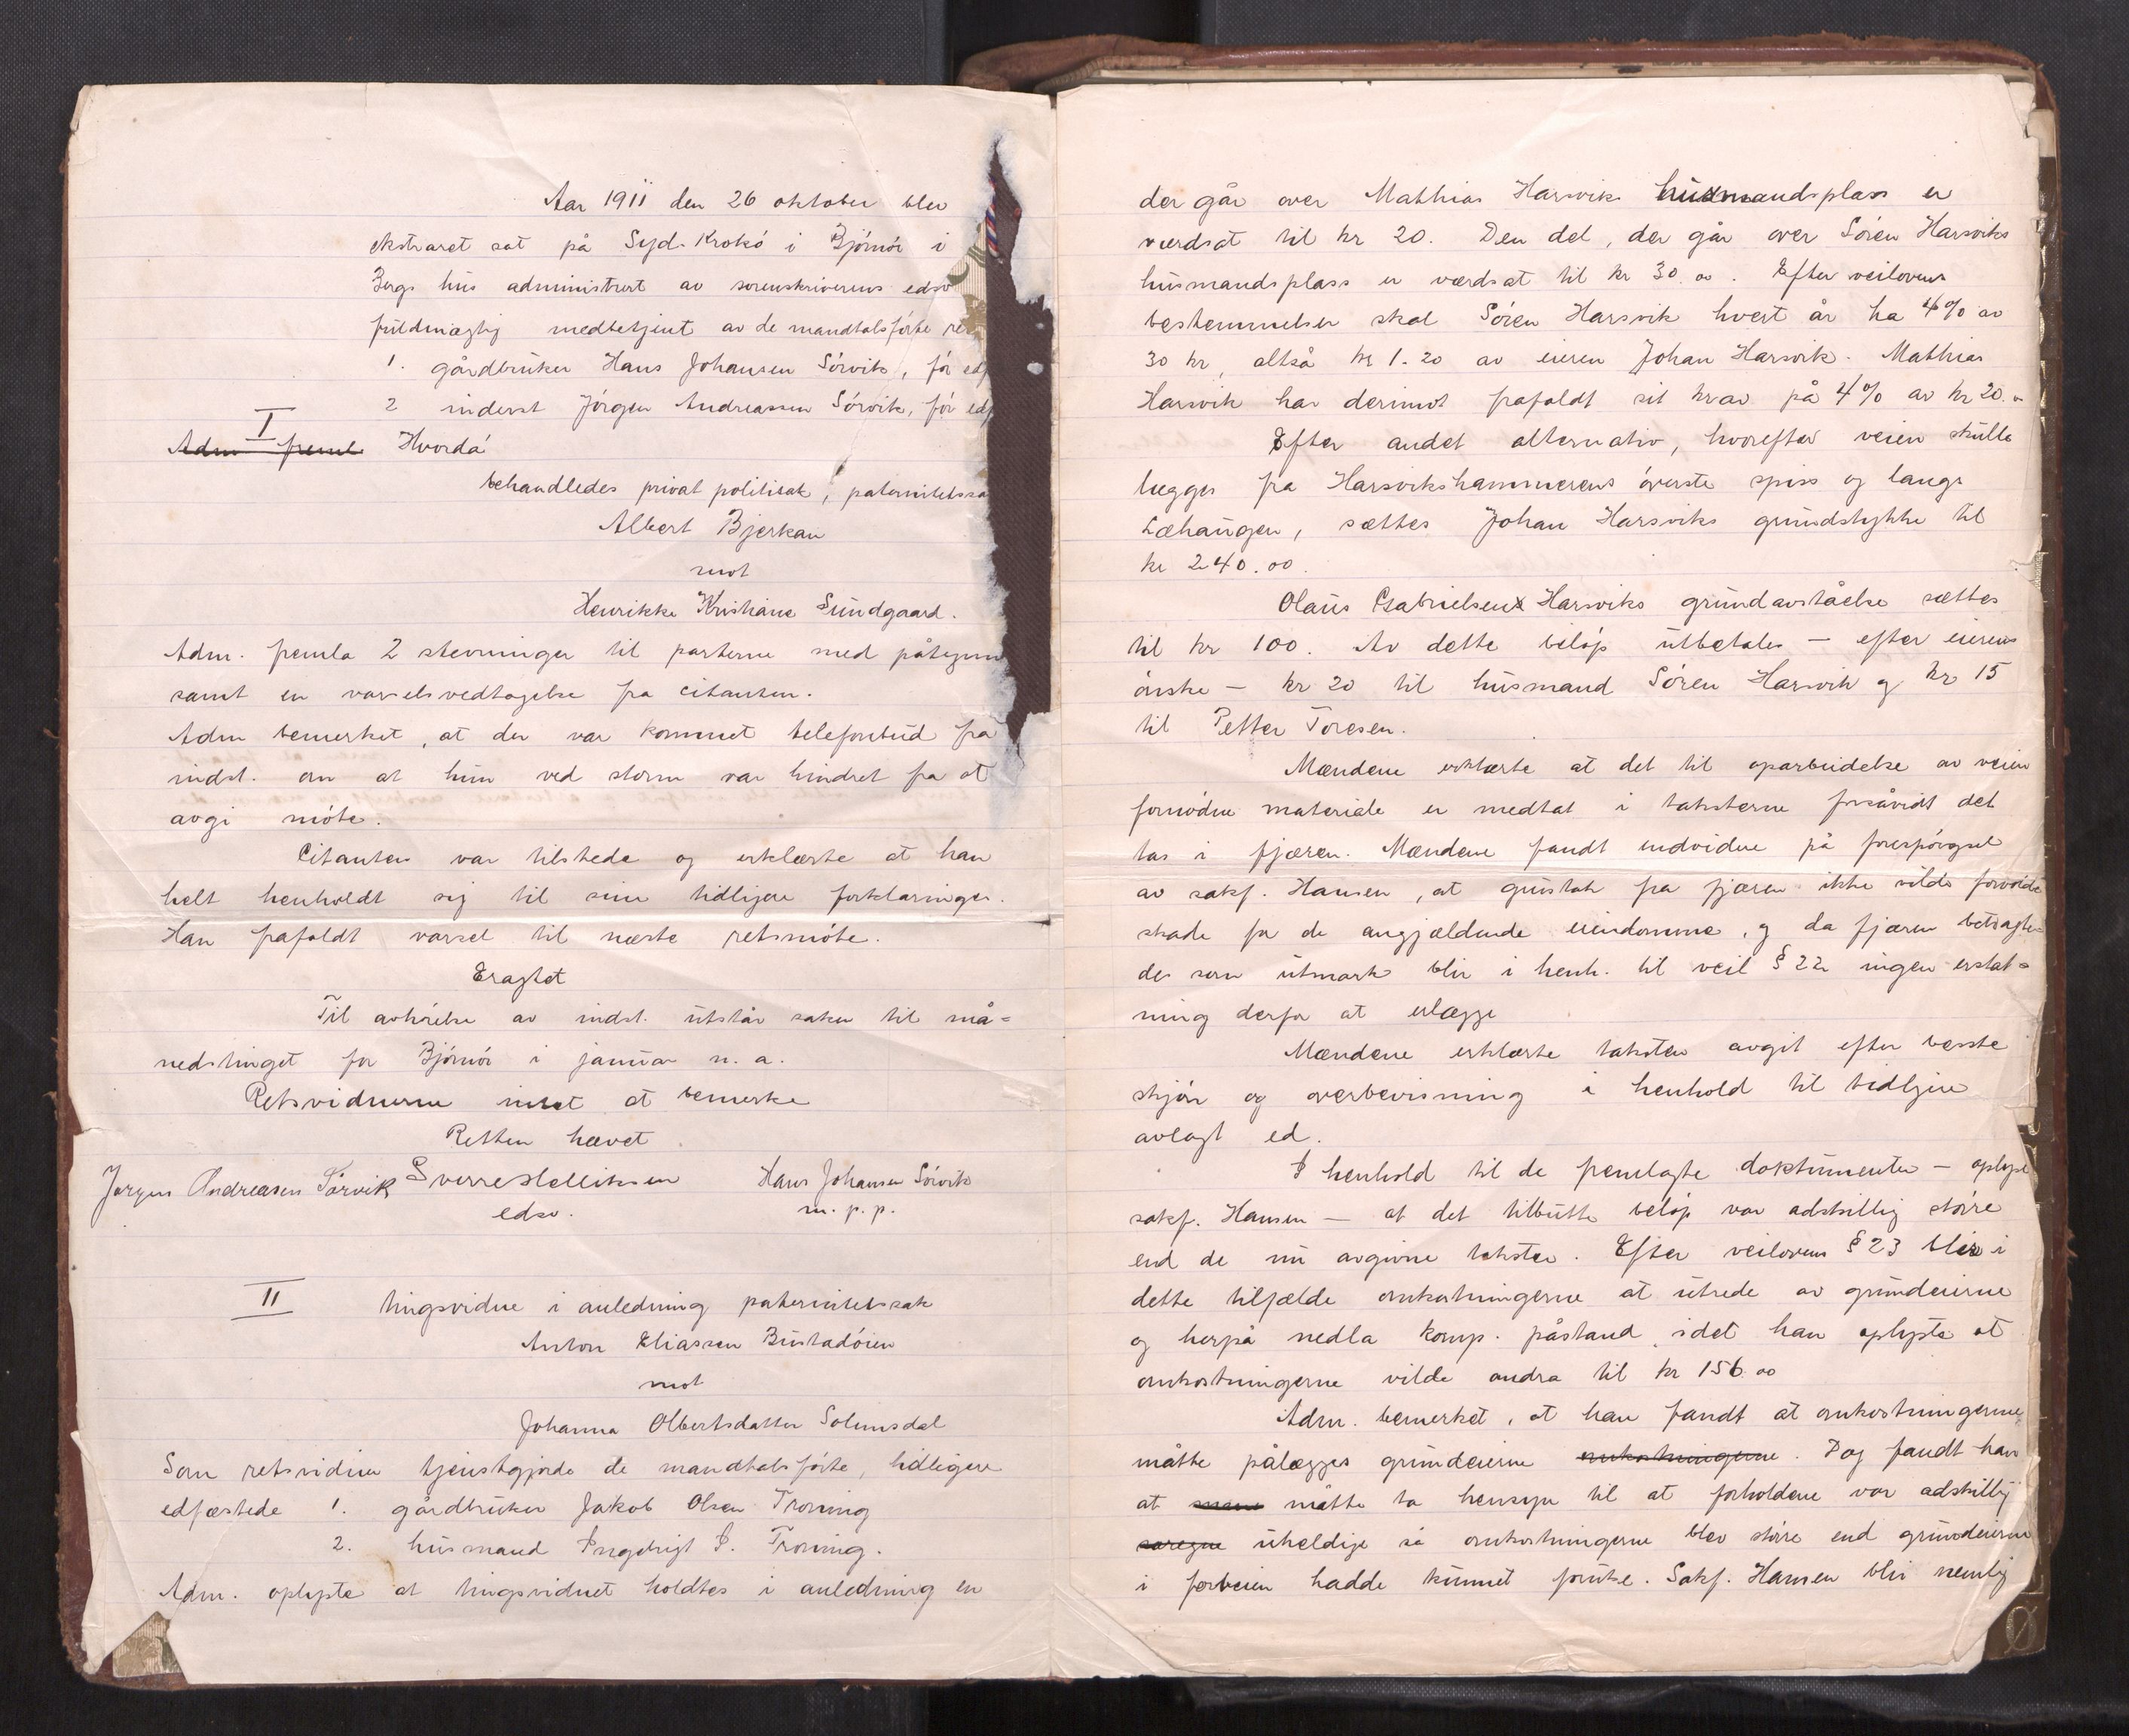 Aar 1911 den 26 oktober blev
ekstraret sat på Syd-Krokö i Björnör i
Bergs hus administrert av sorenskriverens edsv
fuldmægtig medbetjent av de mandtalsförte re
1. gårdbruker Hans Johansen Sörvik, för edf
2 inderst Jörgen Andreassen Sörvik, för edf
I
Adm freml Hvorda
behandledes privat politisak, paternitetssa
Albert Bjerkan
mot
Henrikke Kristiane Sundgaard.
Adm. fremla 2 stevninger til parterne med påtegnin
samt en varselsvedtagelse fra citanten.
Adm bemerket, at der var kommet telefonbud fra
indst. om at hun ved storm var hindret fra at
avgi möte.
Citanten var tilstede og erklærte at han
helt henholdt sig til sine tidligere forklaringer.
Han frafaldt varsel til næste retsmöte.
Eragtet
Til avhörelse av indst. utstår saken til må=
nedstinget for Björnör i januar n. a.
Retsvidnerne intet at bemerke
Retten hævet
Jørgen Andreasen Sørvik Sverre Hellik​sen Hans Johansen Sörvik
edsv. m. p. p.
II tingsvidne i anledning paternitetssak
Anton Eliassen Bustadöien
mot
Johanna Olbertsdatter Solumsdal
Som retsvidner tjenstgjorde de mandtalsförte, tidligere
edfæstede 1. gårdbruker Jakob Olsen Troning
2. husmand Ingebrigt I. Troning.
Adm. oplyste at tingsvidnet holdtes i anledning en
der går over Mathias Harsvik husmandsplass er
værdsat til kr 20. Den del, der går over Sören Harsviks
husmandsplass er værdsat til kr 30.00. Efter veilovens
bestemmelser skal Sören Harsvik hvert år ha 4% av
30 kr, altså kr 1.20 av eieren Johan Harsvik. Mathias
Harsvik har derimot frafaldt sit krav på 4% av kr 20.-
Efter andet alternativ, hvorefter veien skulle
lægges fra Harsvikshammerens överste spiss og langs
Læhaugen, sættes Johan Harsviks grundstykke til
kr 240.00.
Olaus Gabrielsens Harsviks grundavståelse sættes
til kr 100. Av dette belöp utbetales - efter eierens
önske - kr 20 til husmand Sören Harsvik og kr 15
til Petter Toresen.
Mændene erklærte at det til oparbeidelse av veien
fornödne materiale er medtat i taksterne forsåvidt det
tas i fjæren. Mændene fandt endvidere på forespörgsel
av sakf. Hansen, at grustak fra fjæren ikke vilde forvolde
skade for de angjældende eiendomme, og da fjæren betragte=
des som utmark blir i henh. til veil § 22 ingen erstat=
ning derfor at erlægge
Mændene erklærte taksten avgit efter beste
skjön og overbevisning i henhold til tidligere
avlagt ed.
I henhold til de fremlagte dokumenter - oplyste
sakf. Hansen - at det tilbutte belöp var adskillig större
end de nu avgivne takster. Efter veilovens § 23 blir i
dette tilfælde omkostningerne at utrede av grundeierne
og herpå nedla komp. påstand, idet han oplyste at
omkostningerne vilde andra til kr 156.00
Adm. bemerket, at han fandt at omkostningerne
måtte pålægges grundeierne omkostningerne. Dog fandt han
at måtte ta hensyn til at forholdene var adskillig
uheldige så omkostningerne blev större end grundeierne
i forveien hadde kunnet forutse. Sakf. Hansen blir nemlig